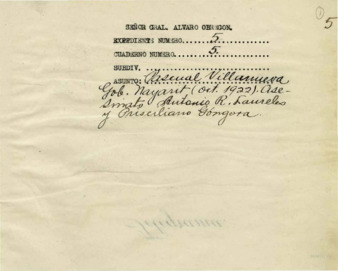 1
5
SEÑOR GRAL. ALVARO OBREGON.
EXPEDIENTE NUMERO.....5..........
CUADERNO NUMERO.......5..........
SUBDIV. .........................
ASUNTO: Pascual Villanueva
Gob. Nayarit (oct. 1922). Ase-
sinato Antonio R. Laureles
y Prisciliano Góngora
Telegrama